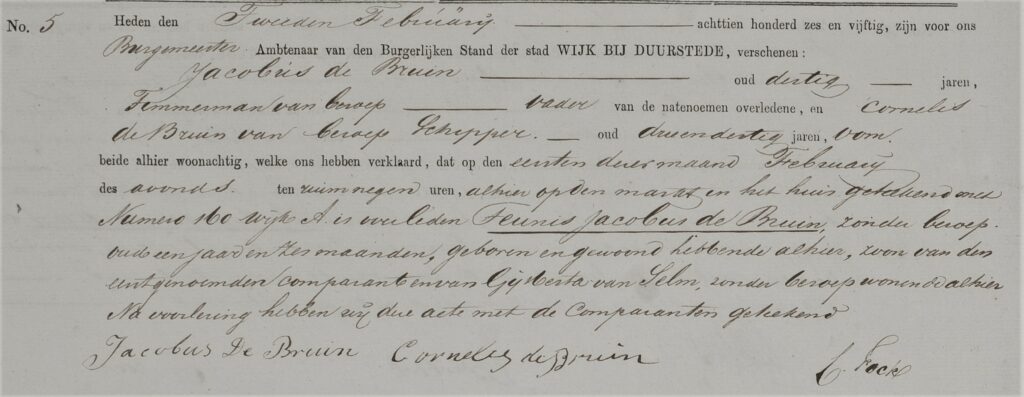 No. 5 Heden den Tweeden Februarij achttien honderd zes en vijftig, zijn voor ons
Burgemeester Ambtenaar van den Burgerlijken Stand der stad WIJK BIJ DUURSTEDE, verschenen:
Jacobus de Bruin oud dertig jaren,
Timmerman van beroep vader van de natenoemen overledene, en Cornelis
de Bruin van beroep Schipper. oud drieendertig jaren, oom
beide alhier woonachtig, welke ons hebben verklaard, dat op den eersten dezer maand Februarij
des avonds. ten ruim negen uren, alhier op den markt in het huis getekend met
Numero 160 wijk A. is overleden Teunis Jacobus de Bruin, zonder beroep.
oud een jaar en zes maanden, geboren en gewoond hebbende alhier, zoon van den
eerstgenoemden comparant en van Gijsberta van Selm, zonder beroep wonende alhier
Na voorlezing hebben wij deze acte met de Comparanten getekend
Jacobus De Bruin Cornelis de Bruin C. Fock